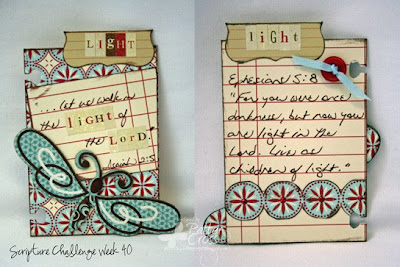 LIGHT
"... let us walk in
the LIGHT of
the LORD."
Isaiah 2:5
Scripture Challenge Week 40
light
Ephesians 5:8
"For you were once
darkness, but now you
are light in the
Lord. Live as
children of light."